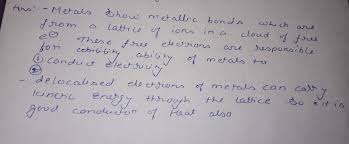 Ans:- Metals show metallic bonds which are
from a lattice of ions in a cloud of free
e⊖. These free electrons are responsible
for ability of metals to
① conduct electricity
②
- delocalised electrons of metals can carry
kinetic energy through the lattice so it is
good conductor of Heat also